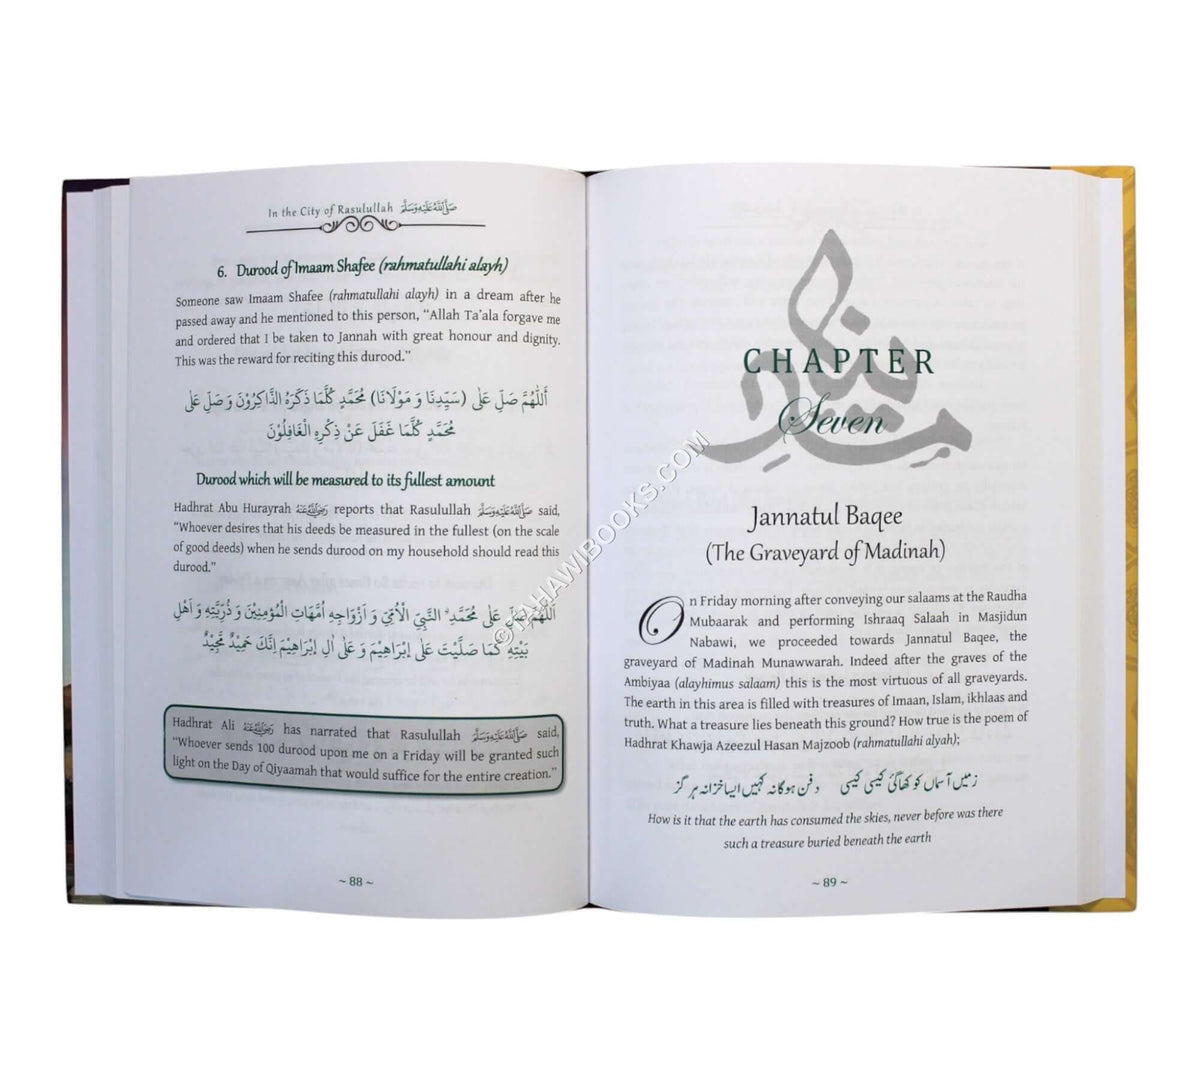 In the City of Rasulullah ﷺ
6. Durood of Imaam Shafee (rahmatullahi alayh)
Someone saw Imaam Shafee (rahmatullahi alayh) in a dream after he
passed away and he mentioned to this person, “Allah Ta’ala forgave me
and ordered that I be taken to Jannah with great honour and dignity.
This was the reward for reciting this durood.”
اَللّٰهُمَّ صَلِّ عَلٰى (سَيِّدِنَا وَ مَوْلَانَا) مُحَمَّدٍ كُلَّمَا ذَكَرَهُ الذَّاكِرُوْنَ وَ صَلِّ عَلٰى
مُحَمَّدٍ كُلَّمَا غَفَلَ عَنْ ذِكْرِهِ الْغَافِلُوْنَ
Durood which will be measured to its fullest amount
Hadhrat Abu Hurayrah رَضِيَ اللهُ عَنْهُ reports that Rasulullah ﷺ said,
“Whoever desires that his deeds be measured in the fullest (on the scale
of good deeds) when he sends durood on my household should read this
durood.”
اَللّٰهُمَّ صَلِّ عَلٰى مُحَمَّدِ ۨ النَّبِيِّ الْاُمِّيِّ وَ اَزْوَاجِهٖ اُمَّهَاتِ الْمُؤْمِنِيْنَ وَ ذُرِّيَّتِهٖ وَ اَهْلِ
بَيْتِهٖ كَمَا صَلَّيْتَ عَلٰى اِبْرَاهِيْمَ وَ عَلٰى اٰلِ اِبْرَاهِيْمَ اِنَّكَ حَمِيْدٌ مَّجِيْدٌ
Hadhrat Ali رَضِيَ اللهُ عَنْهُ has narrated that Rasulullah ﷺ said,
“Whoever sends 100 durood upon me on a Friday will be granted such
light on the Day of Qiyaamah that would suffice for the entire creation.”
~ 88 ~
مدینہ
CHAPTER
Seven
Jannatul Baqee
(The Graveyard of Madinah)
On Friday morning after conveying our salaams at the Raudha
Mubaarak and performing Ishraaq Salaah in Masjidun
Nabawi, we proceeded towards Jannatul Baqee, the
graveyard of Madinah Munawwarah. Indeed after the graves of the
Ambiyaa (alayhimus salaam) this is the most virtuous of all graveyards.
The earth in this area is filled with treasures of Imaan, Islam, ikhlaas and
truth. What a treasure lies beneath this ground? How true is the poem of
Hadhrat Khawja Azeezul Hasan Majzoob (rahmatullahi alyah);
زمیں آسماں کو کھا گئی کیسی کیسی دفن ہوگا نہ کہیں ایسا خزانہ ہرگز
How is it that the earth has consumed the skies, never before was there
such a treasure buried beneath the earth
~ 89 ~
© TAHAWIBOOKS.COM